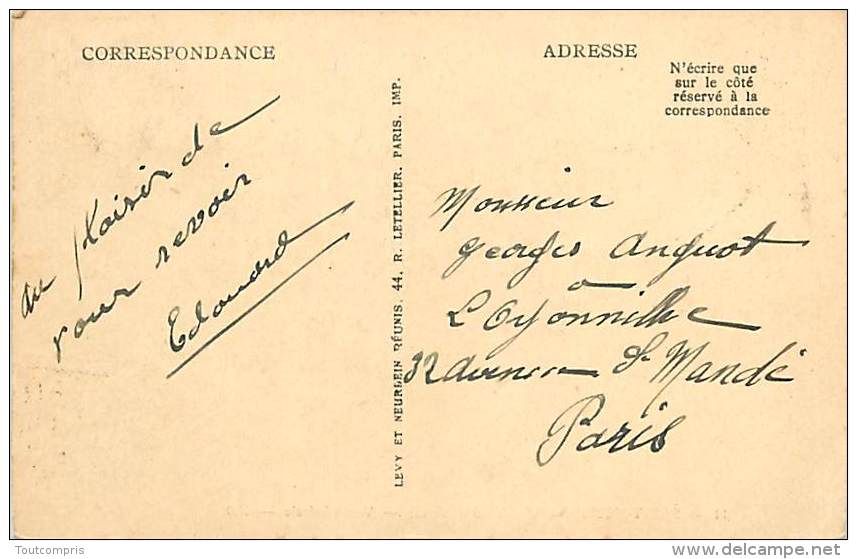 CORRESPONDANCE
au plaisir de
vous revoir
Edouard
LEVY ET NEURDEIN RÉUNIS. 44. R. LETELLIER. PARIS. IMP.
ADRESSE
N'écrire que
sur le côté
réservé à la
correspondance
Monsieur
Georges Anquot
à
L'Oyonnithe
32 avenue St Mandé
Paris
Toutcompris
delcampe.net